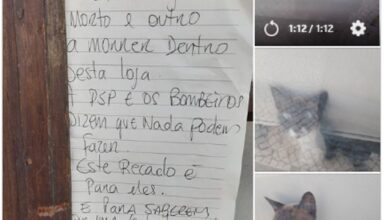 MORTO E OUTRO
A MORRER DENTRO
DESTA LOJA.
A PSP E OS BOMBEIROS
DIZEM QUE NADA PODEM
FAZER.
ESTE RECADO É
PARA ELES.
E PARA SABEREM
1:12 / 1:12